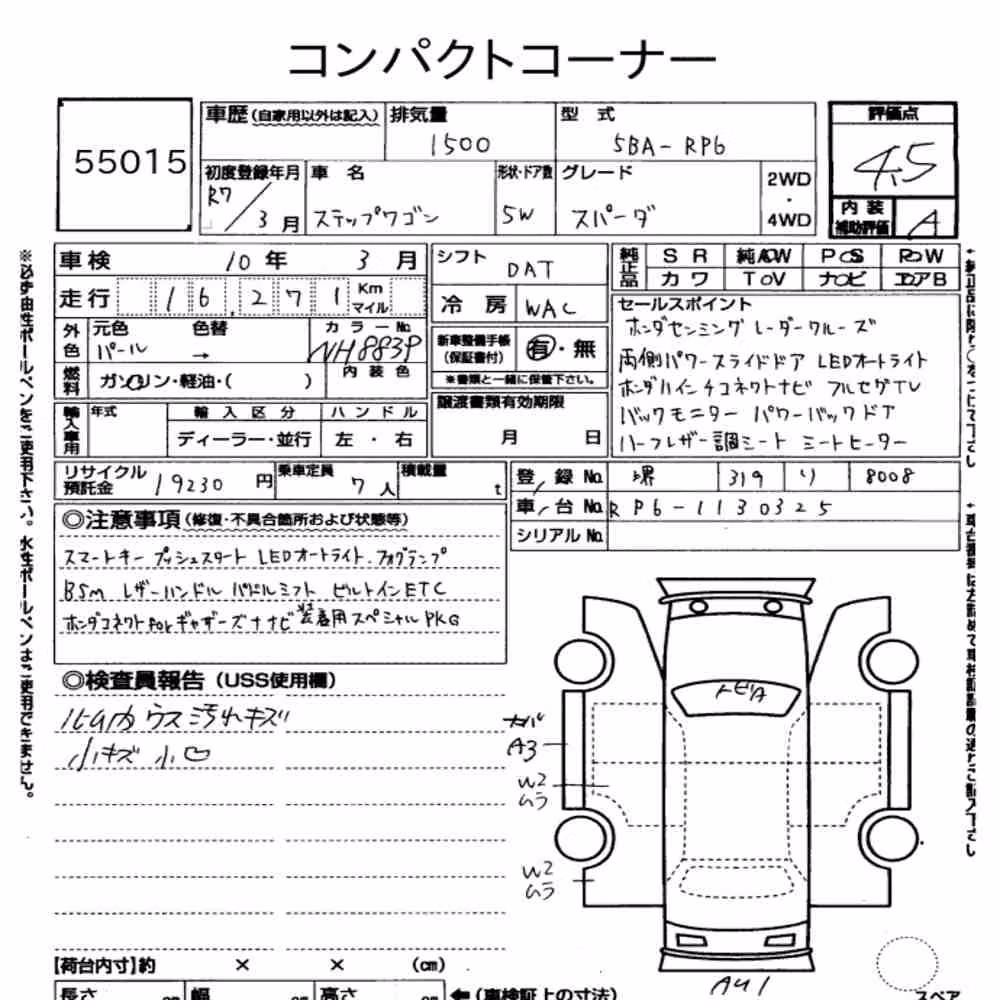 コンパクトコーナー
55015
車歴 (自家用以外は記入) 排気量 型式 評価点
1500 5BA-RP6 4.5
初度登録年月 車名 形状・ドア数 グレード 2WD・4WD
R7/3月 ステップワゴン 5W スパーダ
内装補助評価 A
車検 10年 3月 シフト DAT
純正品 SR 純AW PS RW
カワ TV ナビ エアB
走行 16,271 Km マイル 冷房 WAC
セールスポイント
ホンダセンシング レーダークルーズ
両側パワースライドドア LEDオートライト
ホンダ11インチコネクトナビ フルセグTV
バックモニター パワーバックドア
ハーフレザー調シート シートヒーター
外色 元色 色替 カラーNo.
パール → NH883P
新車整備手帳(保証書付) 有・無
※書類と一緒に保管下さい。
燃料 ガソリン・軽油・( ) 内装色
譲渡書類有効期限
月 日
輸入車用 年式 輸入区分 ハンドル
ディーラー・並行 左・右
リサイクル預託金 19230円 乗車定員 7人 積載量 t
登録No. 堺 319 り 8008
車台No. RP6-1130325
シリアルNo.
◎注意事項 (修復・不具合箇所および状態等)
スマートキー プッシュスタート LEDオートライト.フォグランプ
BSM レザーハンドル パドルシフト ビルトインETC
ホンダコネクトforギャザーズナビ装着用スペシャルPKG
◎検査員報告 (USS使用欄)
内 ウス汚れキズ
小キズ 小凹
トビA
A3
W2
ムラ
W2
ムラ
A41
【荷台内寸】約 × × (cm)
長さ cm 幅 cm 高さ cm ←(車検証上の寸法)
スペア
※必ず油性ボールペンをご使用下さい。水性ボールペンはご使用できません。